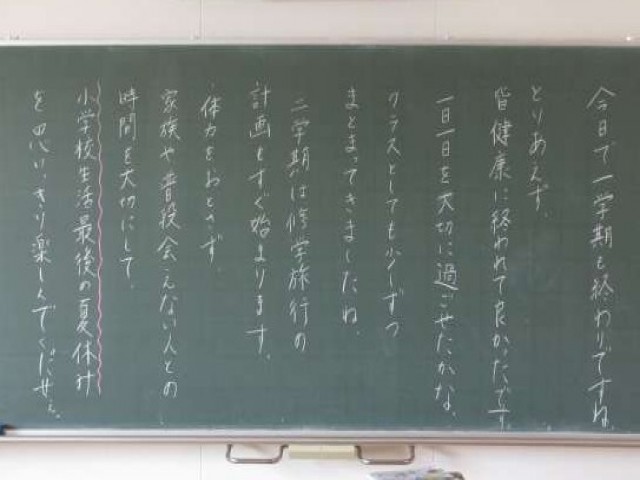 今日で一学期も終わりですね。
とりあえず、
皆健康に終われて良かったです。
一日一日を大切に過ごせたかな。
クラスとしても少しずつ
まとまってきましたね。
二学期は修学旅行の
計画もすぐ始まります。
体力をおとさず、
家族や普段会えない人との
時間を大切にして、
小学校生活最後の夏休み
を思いっきり楽しんでくださいね。